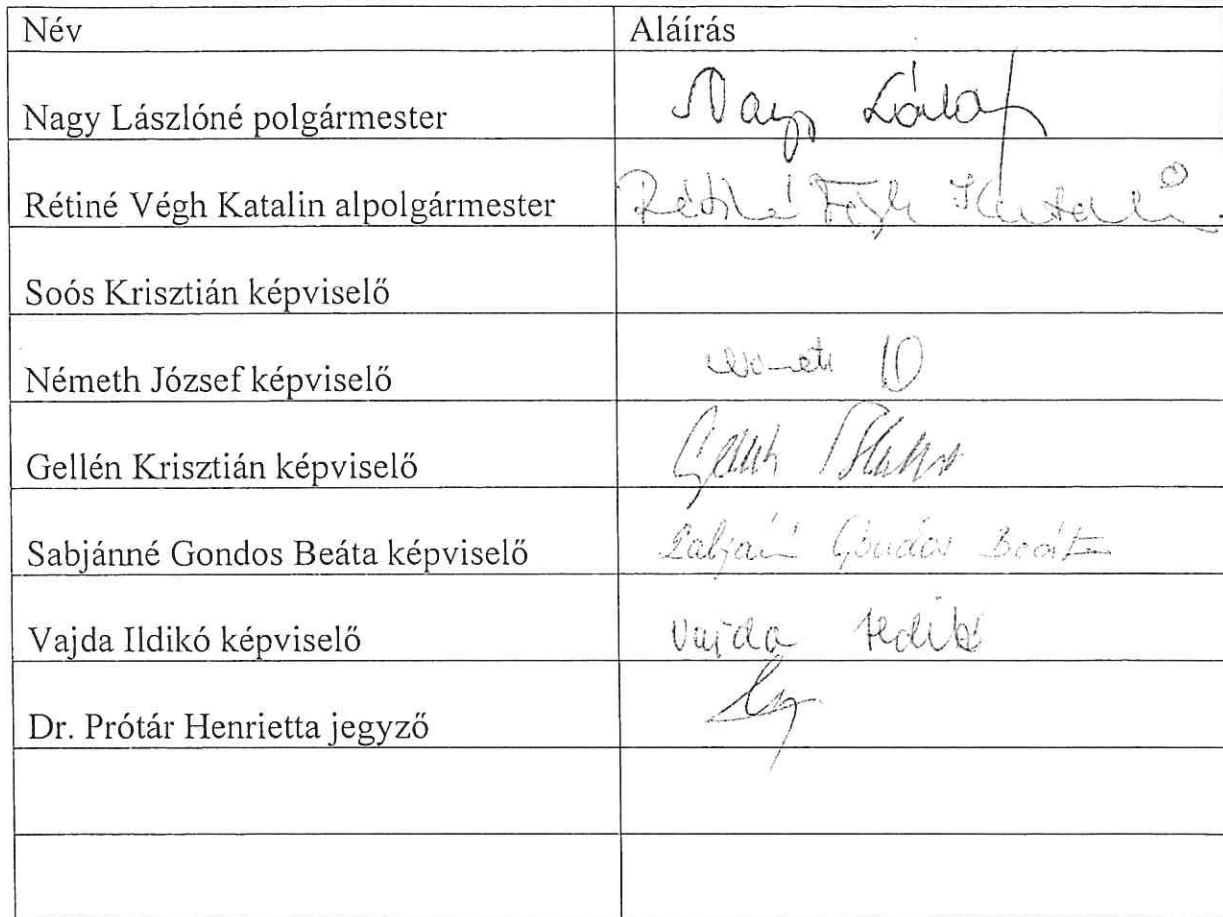 Név Aláírás
Nagy Lászlóné polgármester Nagy
Rétiné Végh Katalin alpolgármester Rétiné Végh Katalin
Soós Krisztián képviselő
Németh József képviselő
Gellén Krisztián képviselő
Sabjánné Gondos Beáta képviselő Sabjánné Gondos Beáta
Vajda Ildikó képviselő Vajda Ildikó
Dr. Prótár Henrietta jegyző